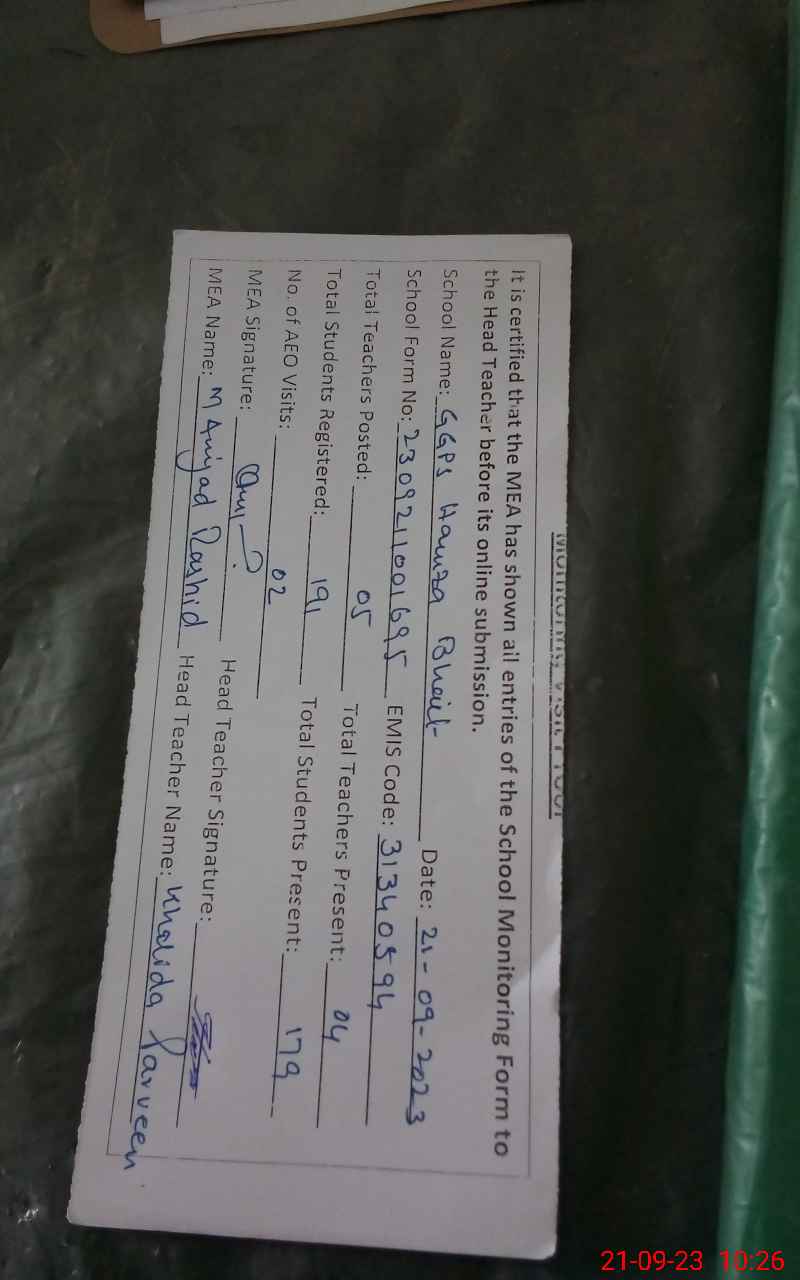 Monitoring Visit Proof
It is certified that the MEA has shown all entries of the School Monitoring Form to
the Head Teacher before its online submission.
School Name: GGPS Hamza Bhait Date: 21-09-2023
School Form No: 230921001695 EMIS Code: 31340594
Total Teachers Posted: 05 Total Teachers Present: 04
Total Students Registered: 191 Total Students Present: 179
No. of AEO Visits: 02
MEA Signature: Head Teacher Signature:
MEA Name: M Amjad Rashid Head Teacher Name: Khalida Parveen
21-09-23 10:26